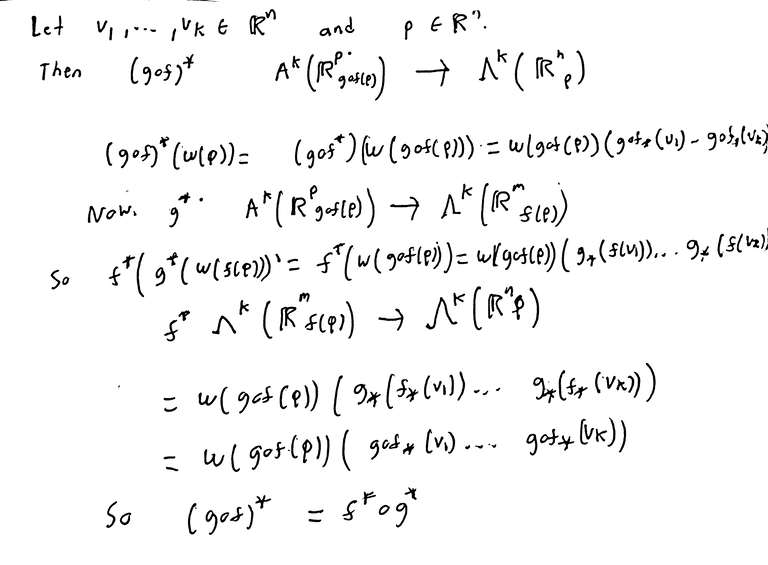 Let v₁, ..., vₖ ∈ ℝⁿ and p ∈ ℝⁿ.
Then (gof)* Aᵏ(ℝᵖ_gof(p)) → Λᵏ(ℝⁿ_p)
(gof)*(w(p)) = (gof*)(w(gof(p))) = w(gof(p))(gof⁎(v₁) – gof⁎(vₖ)
Now. g*. Aᵏ(ℝᵖ_gof(p)) → Λᵏ(ℝᵐ_f(p))
So f*(g*(w(f(p)))' = f*(w(gof(p)) = w(gof(p))(g⁎(f(v₁))... g⁎(f(v₂)
f* Λᵏ(ℝᵐ_f(p)) → Λᵏ(ℝⁿp)
= w(gof(p))(g⁎(f⁎(v₁))... g⁎(f⁎(vₖ))
= w(gof(p))(gof⁎(v₁).... gof⁎(vₖ))
So (gof)* = f*og*